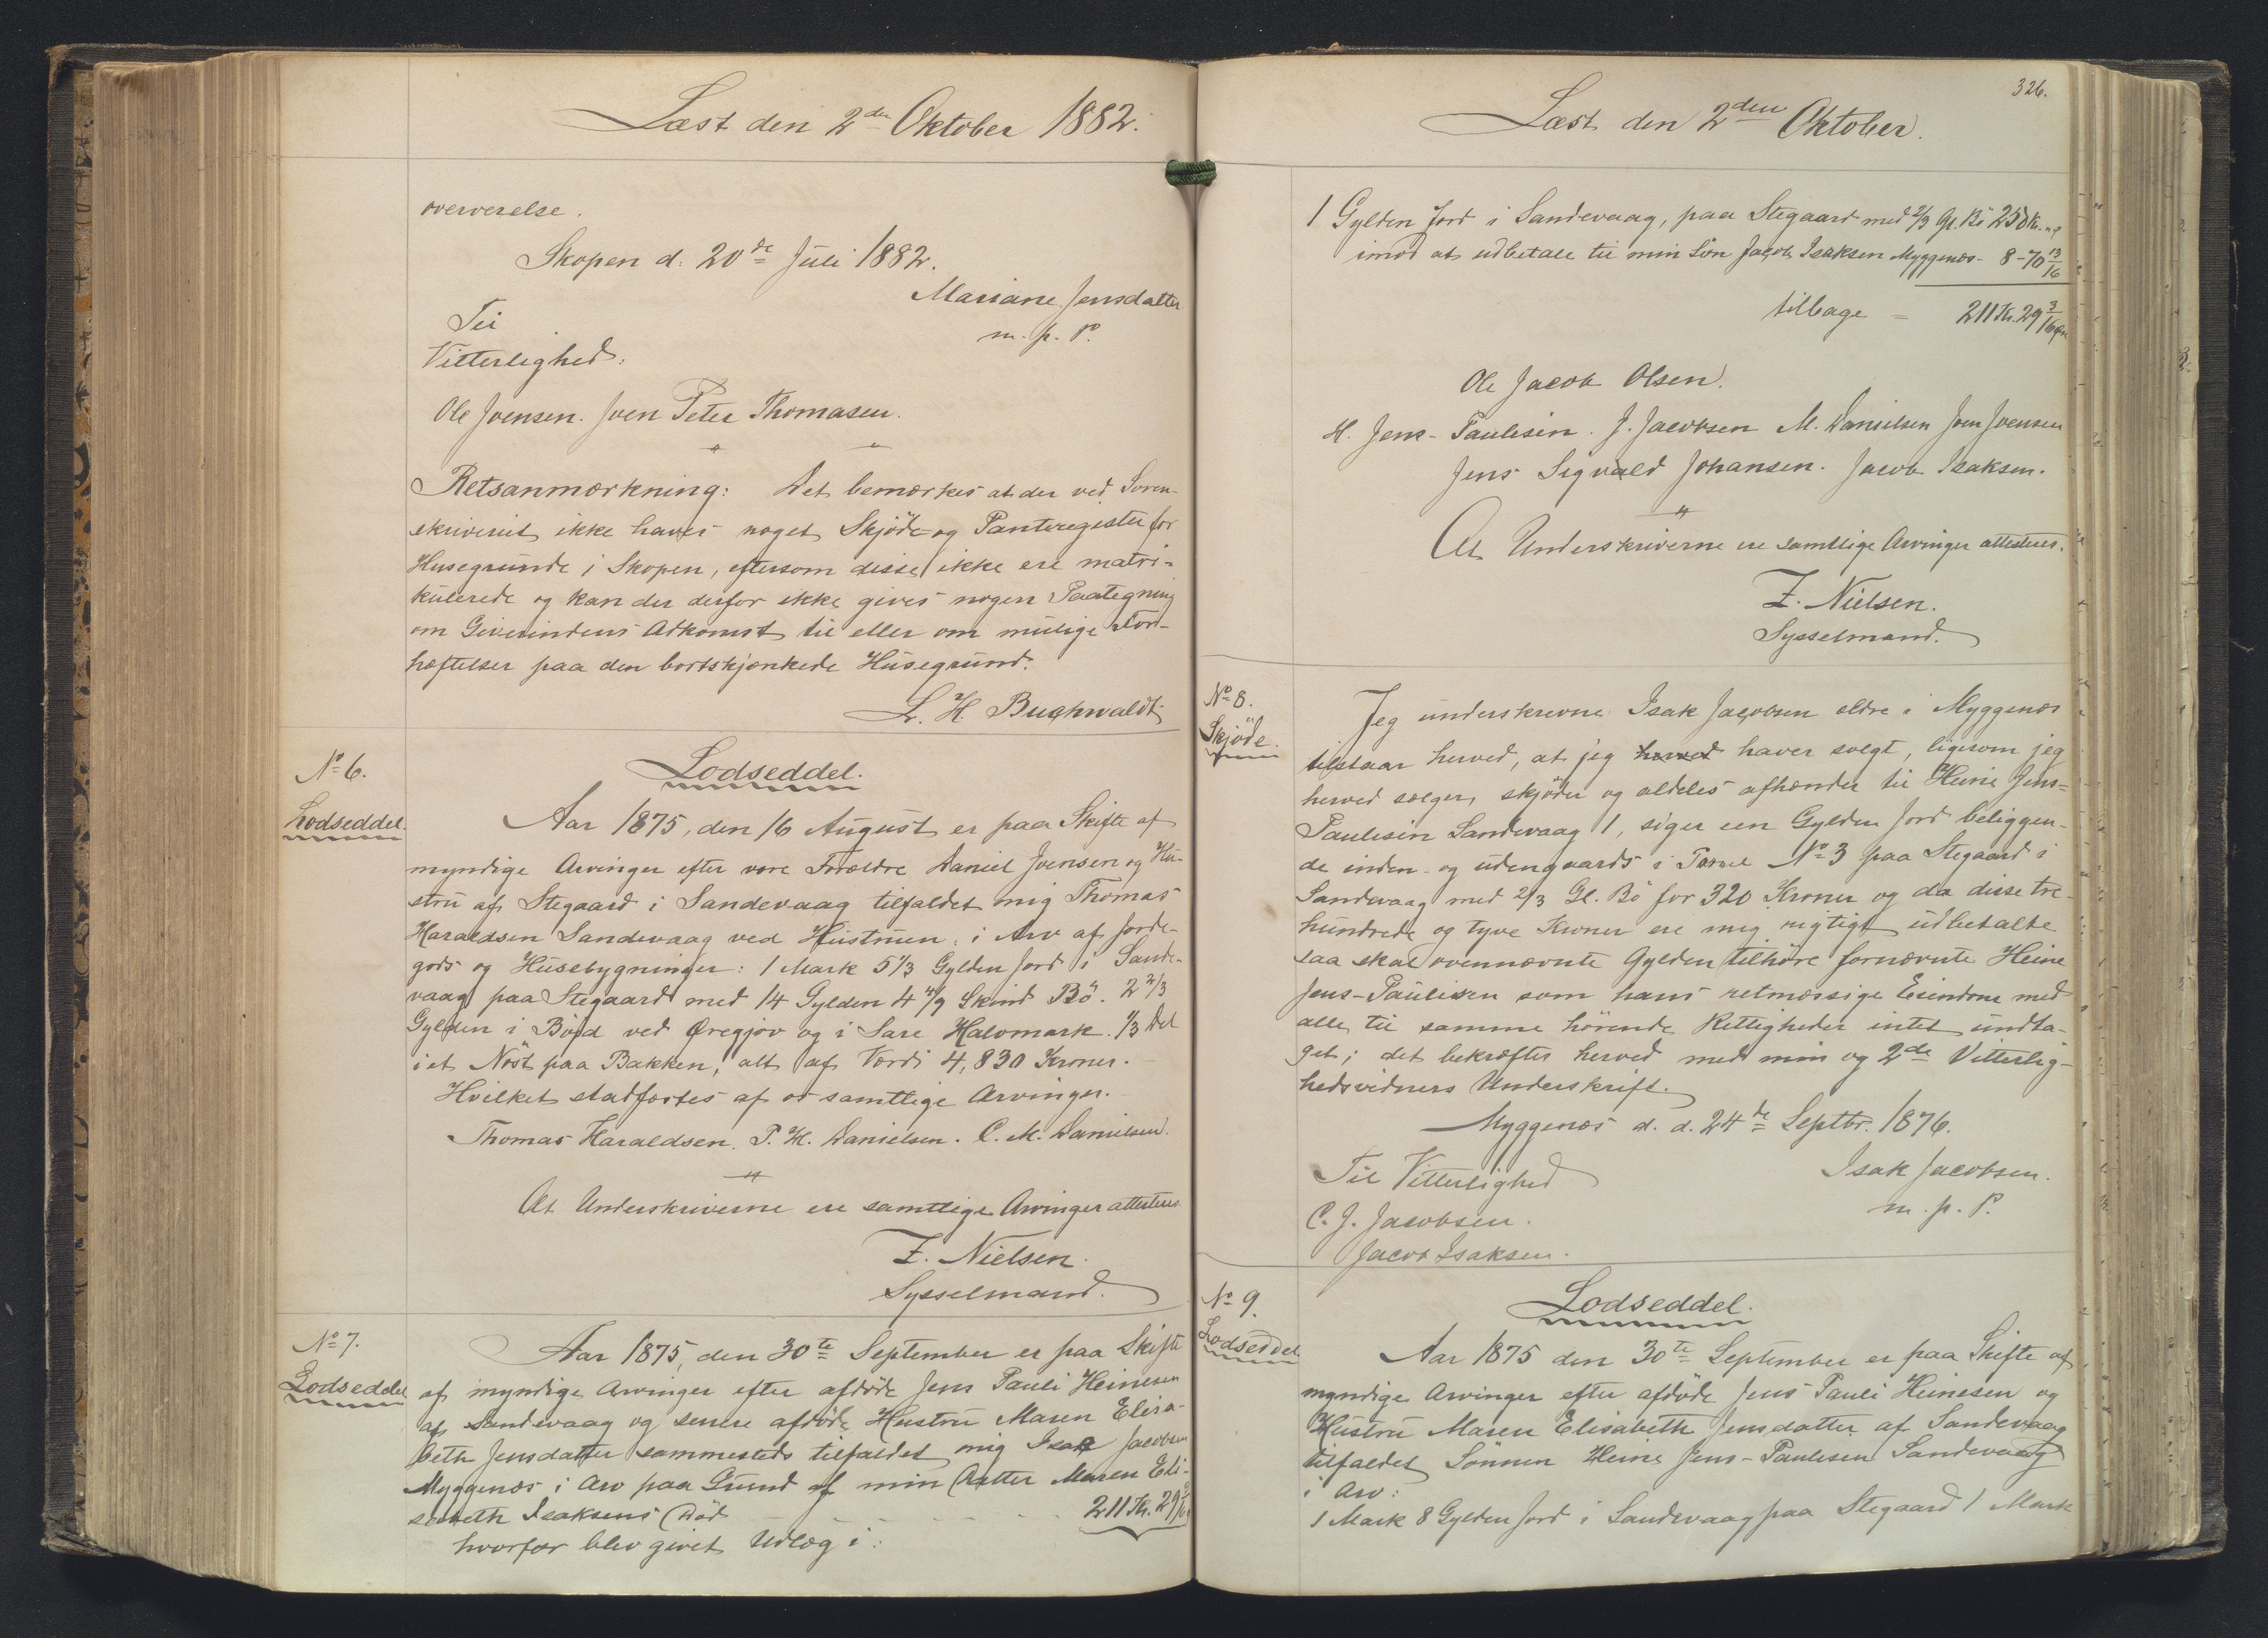 Læst den 2den Oktober 1882.
overværelse.
Skopen d. 20de Juli 1882.
Mariane Jensdatter
m. p. P.
Til
Vitterlighed:
Ole Joensen. Joen Peter Thomasen.
"
Retsanmærkning: Det bemærkes at der ved Soren-
skriveriet ikke haves noget Skjöde- og Panteregister for
Husegrunde i Skopen, eftersom disse ikke ere matri-
kulerede og kan der derfor ikke gives nogen Paategning
om Giverindens Adkomst til eller om mulige For-
hæftelser paa den bortskjænkede Husegrund.
L. H. Buchwaldt
No 6.
Lodseddel.
Lodseddel.
Aar 1875, den 16 August er paa Skifte af
myndige Arvinger efter vore Forældre Daniel Joensen og Hu-
stru af Stegaard i Sandevaag tilfaldet mig Thomas
Haraldsen Sandevaag ved Hustruen, i Arv af Jorde-
gods og Husebygninger: 1 Mark 5 1/3 Gylden Jord i Sande-
vaag paa Stegaard med 14 Gylden 4 4/9 Skind Bö. 2 2/3
Gylden i ved Øregjov og i Sare Halvmark. 1/3 Del
i et Nöst paa Bakken, alt af Værdi 4,830 Kroner.
Hvilket stadfæstes af os samtlige Arvinger.
Thomas Haraldsen. P. H. Danielsen. C. M. Danielsen.
"
At Underskriverne ere samtlige Arvinger attesteres.
Z. Nielsen.
Sysselmand.
No 7.
Lodseddel
Aar 1875, den 30te September er paa Skifte
af myndige Arvinger efter afdöde Jens Pauli Heinesen
af Sandevaag og senere afdöde Hustru Maren Elisa-
beth Jensdatter sammesteds tilfaldet mig Isak Jacobsen
Myggenæs i Arv paa Grund af min Datter Maren Eli-
sabeth Isaksens Död 211 Kr. 29
hvorfor blev givet Udlæg i:
326.
Læst den 2den Oktober.
1 Gylden Jord i Sandevaag, paa Stegaard med 2/3 Gl. Bö Kr.
imod at udbetale til min Sön Jacob Isaksen Myggenæs - 8-70 13/16
tilbage = 211 Kr. 29 3/16
Ole Jacob Olsen.
H. Jens-Paulisen. J. Jacobsen M. Danielsen Joen Joensen
Jens Sigvald Johansen. Jacob Isaksen.
"
At Underskriverne ere samtlige Arvinger attesteres.
Z. Nielsen.
Sysselmand.
No 8.
Skjöde.
Jeg underskrevne Isak Jacobsen ældre i Myggenæs
tilstaar herved, at jeg herved haver solgt, ligesom jeg
herved sælger, skjöder og aldeles afhænder til Heine Jens-
Paulisen Sandevaag 1, siger een Gylden Jord beliggen-
de inden- og udengaards i No 3 paa Stegaard i
Sandevaag med 2/3 Gl. Bö for 320 Kroner og da disse tre-
hundrede og tyve Kroner ere mig rigtigt udbetalte
saa skal ovennævnte Gylden tilhöre fornævnte Heine
Jens-Paulisen som hans retmæssige Eiendom med
alle til samme hörende Rettigheder intet undta-
get; det bekræfter herved med min og 2de Vitterlig-
hedsvidners Underskrift.
Myggenæs d. d. 24de Septbr. 1876.
Isak Jacobsen.
m. p. P.
Til Vitterlighed
C. J. Jacobsen.
Jacob Isaksen.
No 9.
Lodseddel
Lodseddel.
Aar 1875 den 30te September er paa Skifte af
myndige Arvinger efter afdöde Jens Pauli Heinesen og
Hustru Maren Elisabeth Jensdatter af Sandevaag
tilfaldet Sönnen Heine Jens-Paulisen Sandevaag
i Arv:
1 Mark 8 Gylden Jord i Sandevaag paa Stegaard 1 Mark